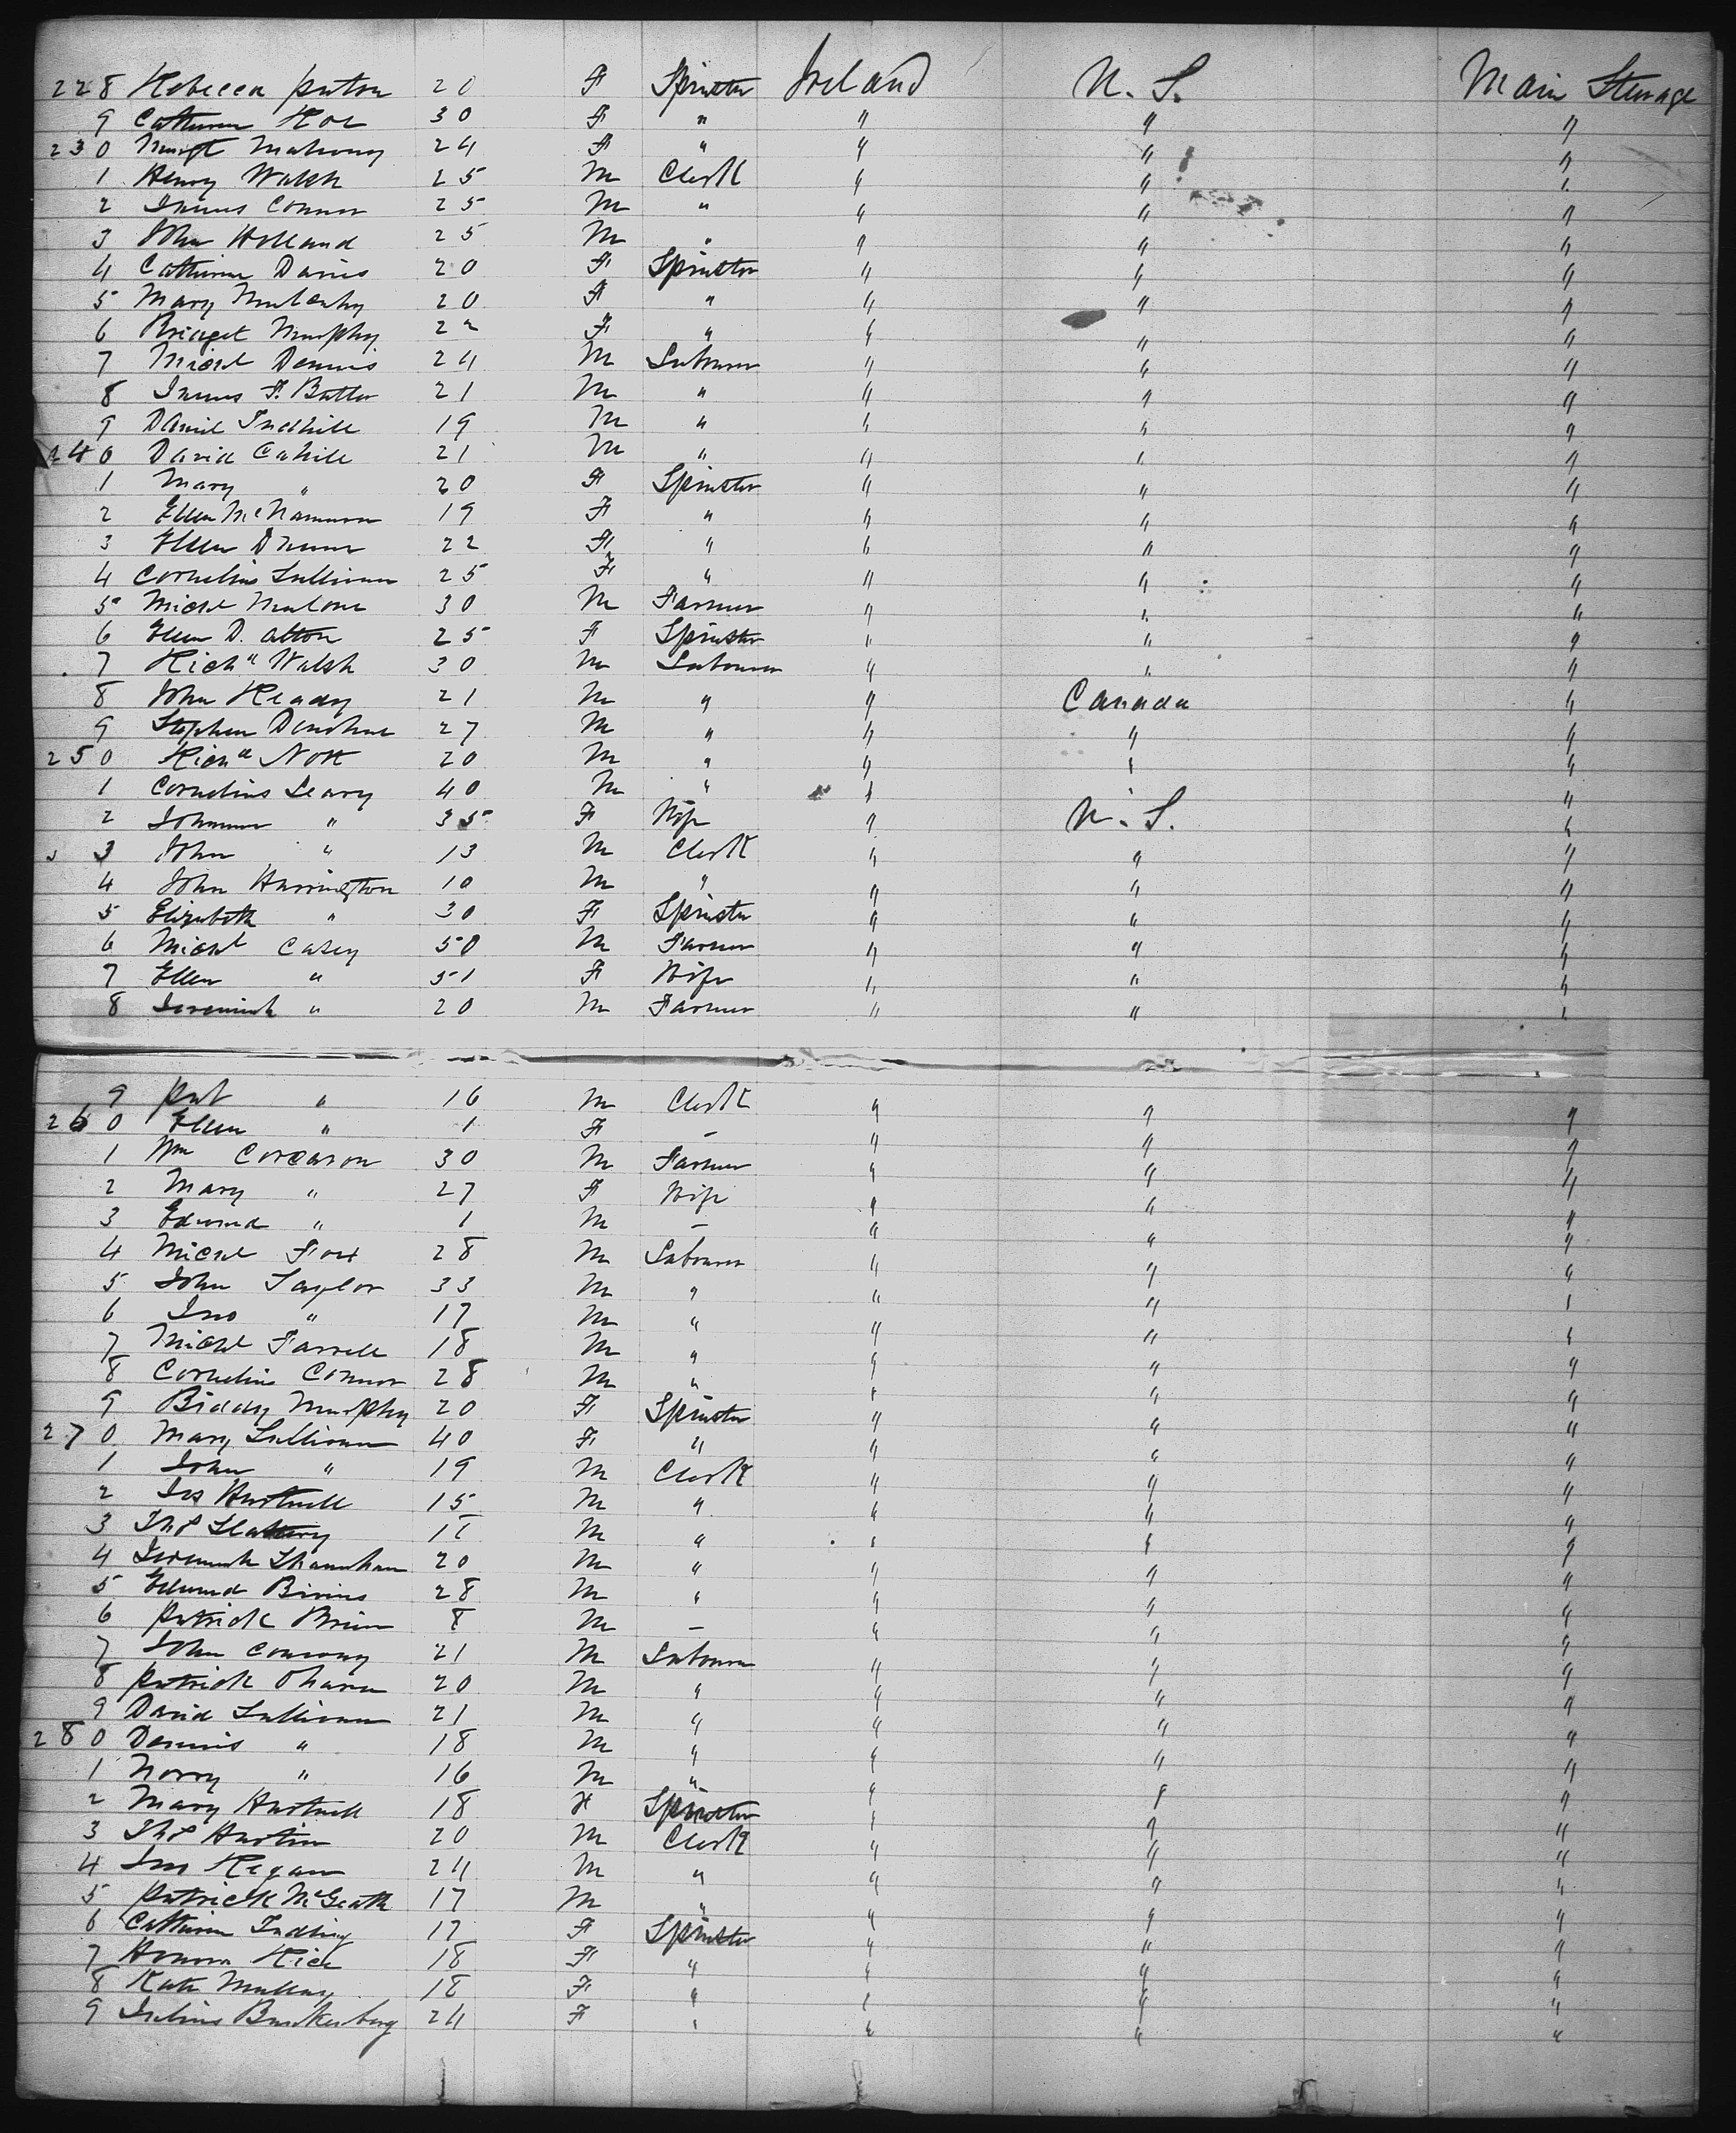 228 Rebecca Paton 20 F Spinster Ireland U. S. Main Steerage
9 Catherine Roe 30 F " " " "
230 Margt Mahony 24 F " " " "
1 Henry Walsh 25 M Clerk " " "
2 James Connor 25 M " " " "
3 John Holland 25 M " " " "
4 Catherine Davis 20 F Spinster " " "
5 Mary Mulcahy 20 F " " " "
6 Bridget Murphy 22 F " " " "
7 Michl Dennis 24 M Labourer " " "
8 James F. Butler 21 M " " " "
9 Daniel 19 M " " " "
240 David Cahill 21 M " " " "
1 Mary " 20 F Spinster " " "
2 Ellen McNamara 19 F " " " "
3 Ellen 22 F " " " "
4 Cornelius Sullivan 25 F " " " "
5 Michl Malone 30 M Farmer " " "
6 Ellen D. Alton 25 F Spinster " " "
7 Richd Walsh 30 M Labourer " " "
8 John Ready 21 M " " Canada "
9 Stephen Donohue 27 M " " " "
250 Richd Nott 20 M " " " "
1 Cornelius Leary 40 M " " " "
2 Johanna " 35 F Wife " U. S. "
3 John " 13 M Clerk " " "
4 John Harrington 10 M " " " "
5 Elizabeth " 30 F Spinster " " "
6 Michl Casey 50 M Farmer " " "
7 Ellen " 51 F Wife " " "
8 Jeremiah " 20 M Farmer " " "
9 Pat " 16 M Clerk " " "
260 Ellen " 1 F – " " "
1 Wm Corcaron 30 M Farmer " " "
2 Mary " 27 F Wife " " "
3 Edward " 1 M – " " "
4 Michl Fox 28 M Labourer " " "
5 John Taylor 33 M " " " "
6 Jno " 17 M " " " "
7 Michl Farrell 18 M " " " "
8 Cornelius Connor 28 M " " " "
9 Biddy Murphy 20 F Spinster " " "
270 Mary Sullivan 40 F " " " "
1 John " 19 M Clerk " " "
2 Jas Hartnell 15 M " " " "
3 Thos Slattery M " " " "
4 Jeremiah Shanahan 20 M " " " "
5 Edward Bivins 28 M " " " "
6 Patrick Brien 8 M – " " "
7 John Conway 21 M Labourer " " "
8 Patrick Ohara 20 M " " " "
9 David Sullivan 21 M " " " "
280 Dennis " 18 M " " " "
1 Norry " 16 M " " " "
2 Mary Hartnell 18 F Spinster " " "
3 Thos Austin 20 M Clerk " " "
4 Jno Regan 24 M " " " "
5 Patrick McGrath 17 M " " " "
6 Catherine 17 F Spinster " " "
7 Honora Rice 18 F " " " "
8 Kate Mullany 18 F " " " "
9 Julius 24 F " " " "